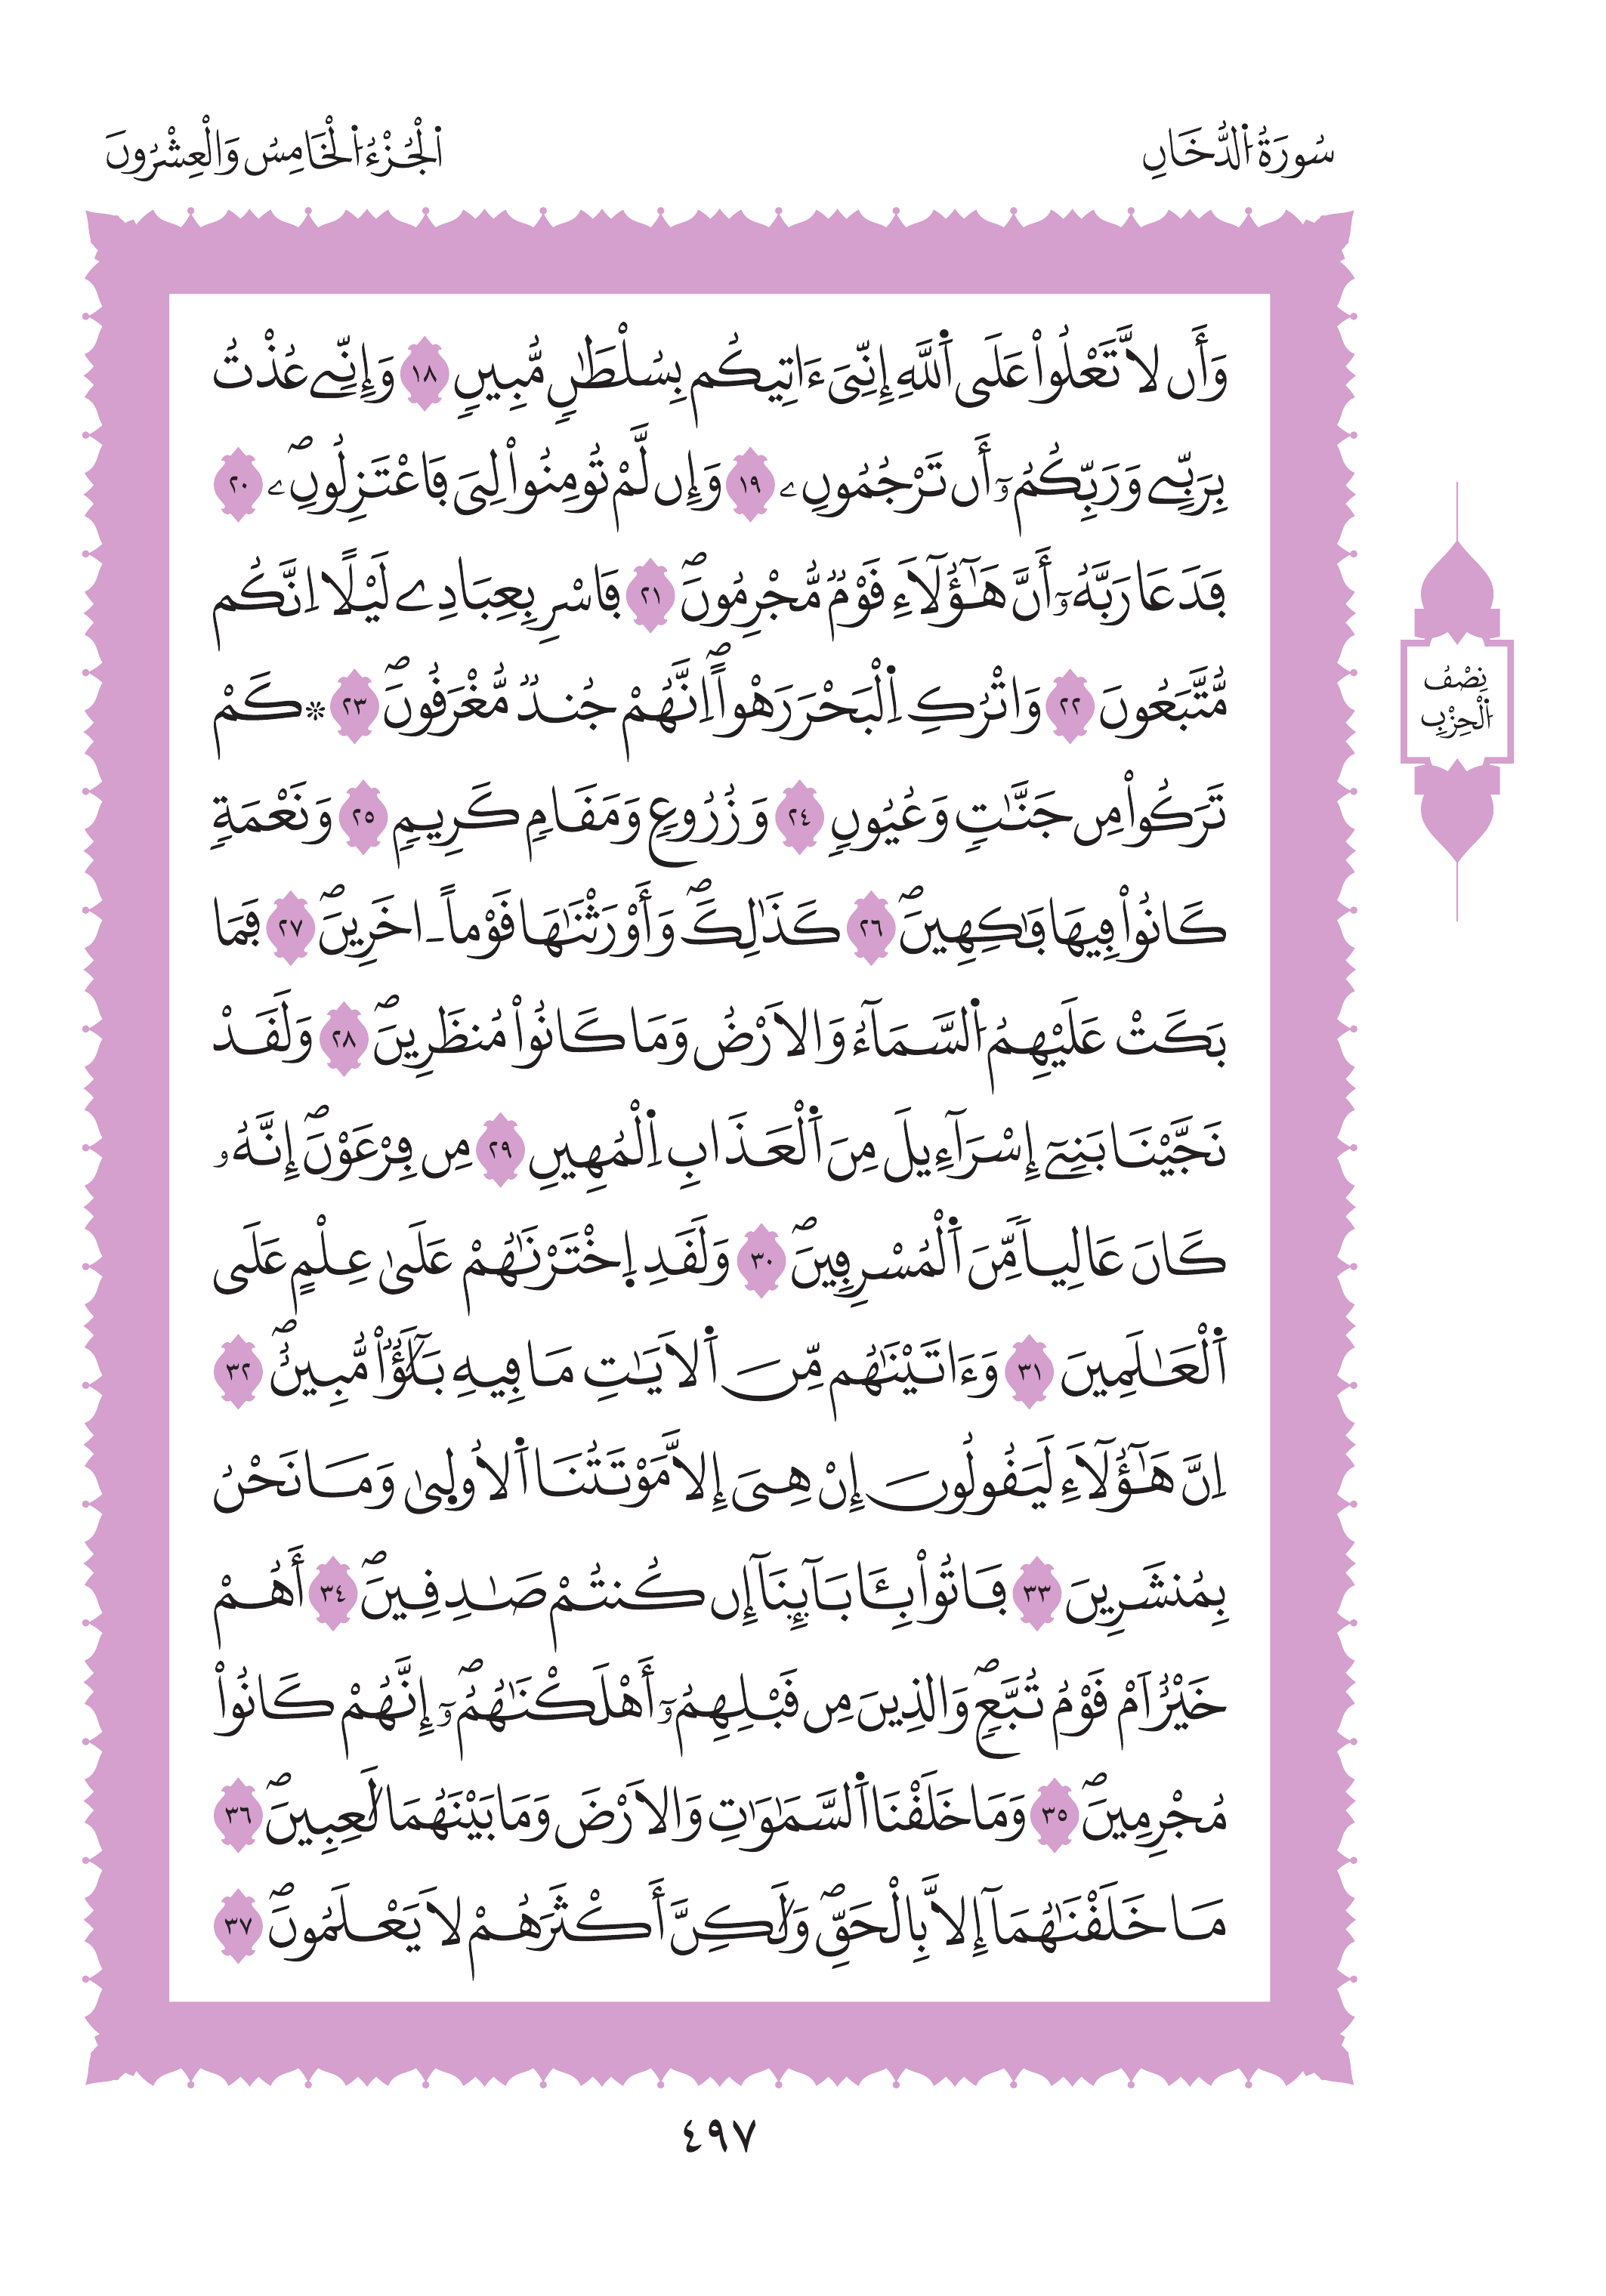 سُورَةُ اُ۬لدُّخَانِ
اَ۬لْجُزْءُ اُ۬لْخَامِسُ وَالْعِشْرُونَ
وَأَن لَّا تَعْلُواْ عَلَى اَ۬للَّهِ إِنِّيَ ءَاتِيكُم بِسُلْطَٰنٖ مُّبِينٖ ١٨ وَإِنِّے عُذْتُ
بِرَبِّے وَرَبِّكُمُۥٓ أَن تَرْجُمُونِۦ ١٩ وَإِن لَّمْ تُومِنُواْ لِيَ فَاعْتَزِلُونِۖۦ ٢٠
فَدَعَا رَبَّهُۥٓ أَنَّ هَٰٓؤُلَآءِ قَوْمٞ مُّجْرِمُونَۖ ٢١ فَاسْرِ بِعِبَادِے لَيْلًا اِنَّكُم
مُّتَّبَعُونَ ٢٢ وَاتْرُكِ اِ۬لْبَحْرَ رَهْواًۖ اِنَّهُمْ جُندٞ مُّغْرَقُونَۖ ٢٣ ۞ كَمْ
تَرَكُواْ مِن جَنَّٰتٖ وَعُيُونٖ ٢٤ وَزُرُوعٖ وَمَقَامٖ كَرِيمٖ ٢٥ وَنَعْمَةٖ
كَانُواْ فِيهَا فَٰكِهِينَۖ ٢٦ كَذَٰلِكَۖ وَأَوْرَثْنَٰهَا قَوْماً ـ اخَرِينَۖ ٢٧ فَمَا
بَكَتْ عَلَيْهِمُ اُ۬لسَّمَآءُ وَالَارْضُ وَمَا كَانُواْ مُنظَرِينَۖ ٢٨ وَلَقَدْ
نَجَّيْنَا بَنِےٓ إِسْرَآءِيلَ مِنَ اَ۬لْعَذَابِ اِ۬لْمُهِينِ ٢٩ مِن فِرْعَوْنَۖ إِنَّهُۥ
كَانَ عَالِياٗ مِّنَ اَ۬لْمُسْرِفِينَۖ ٣٠ وَلَقَدِ اِ۪خْتَرْنَٰهُمْ عَلَىٰ عِلْمٍ عَلَى
اَ۬لْعَٰلَمِينَ ٣١ وَءَاتَيْنَٰهُم مِّنَ اَ۬لَايَٰتِ مَا فِيهِ بَلَٰٓؤٞاْ مُّبِينٌۖ ٣٢
اِنَّ هَٰٓؤُلَآءِ لَيَقُولُونَ إِنْ هِيَ إِلَّا مَوْتَتُنَا اَ۬لُاول۪ىٰ وَمَا نَحْنُ
بِمُنشَرِينَ ٣٣ فَاتُواْ بِـَٔابَآئِنَآ إِن كُنتُمْ صَٰدِقِينَۖ ٣٤ أَهُمْ
خَيْرٌ اَمْ قَوْمُ تُبَّعٖۖ وَالذِينَ مِن قَبْلِهِمُۥٓ أَهْلَكْنَٰهُمُۥٓۖ إِنَّهُمْ كَانُواْ
مُجْرِمِينَۖ ٣٥ وَمَا خَلَقْنَا اَ۬لسَّمَٰوَٰتِ وَالَارْضَ وَمَا بَيْنَهُمَا لَٰعِبِينَۖ ٣٦
مَا خَلَقْنَٰهُمَآ إِلَّا بِالْحَقِّۖ وَلَٰكِنَّ أَكْثَرَهُمْ لَا يَعْلَمُونَۖ ٣٧
نِصْفُ
اُ۬لْحِزْبِ
٤٩٧